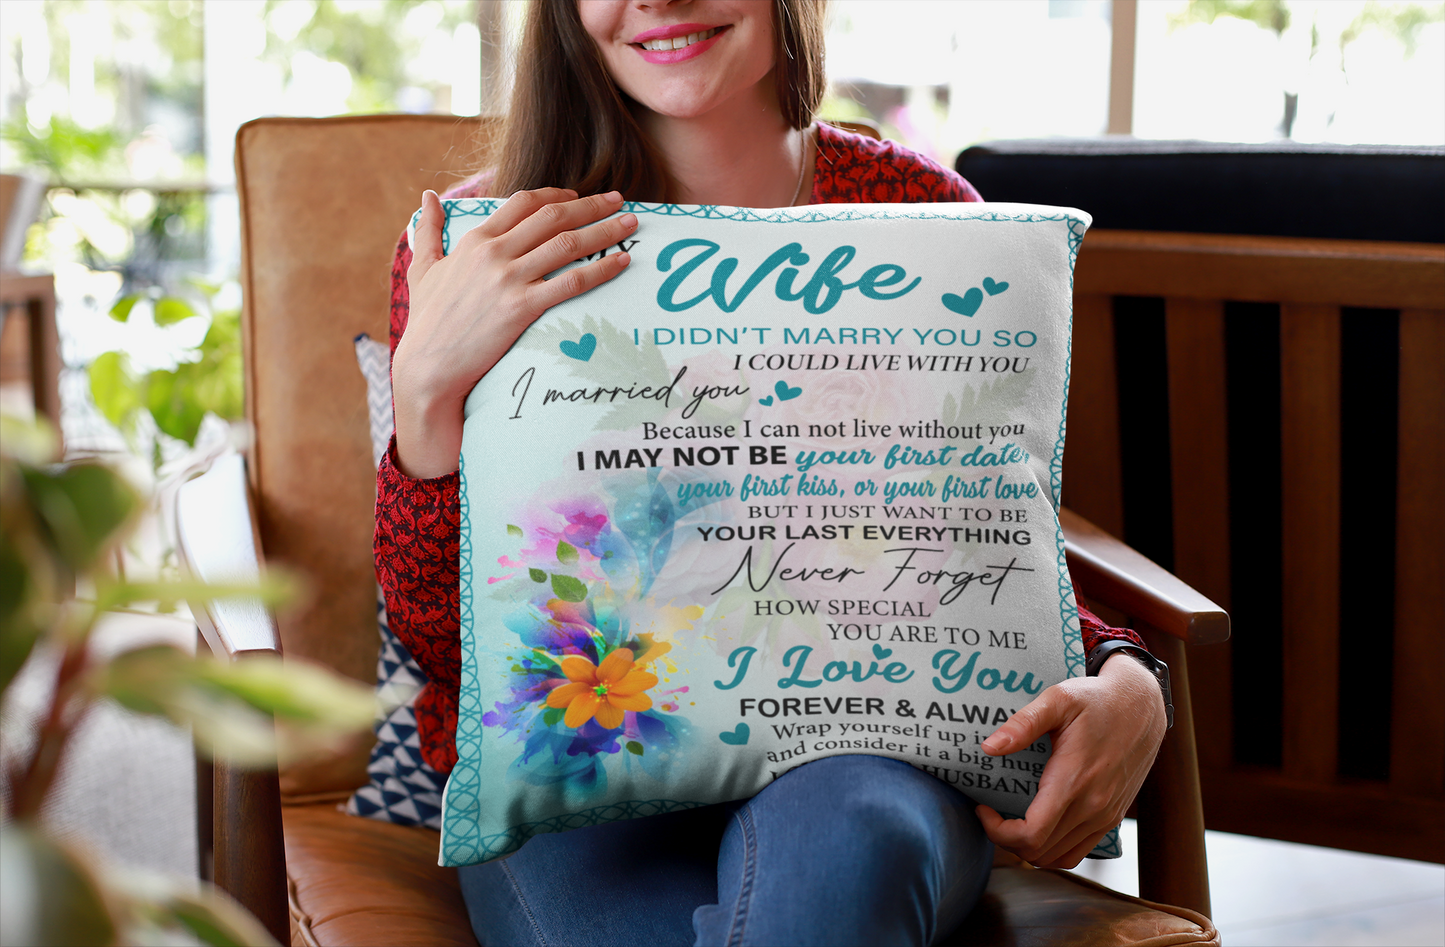 MY
Wife
I DIDN'T MARRY YOU SO
I COULD LIVE WITH YOU
I married you
Because I can not live without you
I MAY NOT BE your first date,
your first kiss, or your first love
BUT I JUST WANT TO BE
YOUR LAST EVERYTHING
Never Forget
HOW SPECIAL
YOU ARE TO ME
I Love You
FOREVER & ALWAY
Wrap yourself up in
and consider it a big hug
HUSBAN